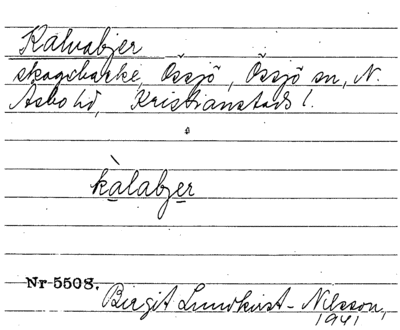 Kalvabjer
skogsbacke, Össjö, Össjö sn, N.
Åsbo hd, Kristianstads l.
kàlabjer
Nr 5508.
Birgit Lundkvist-Nilsson,
1941